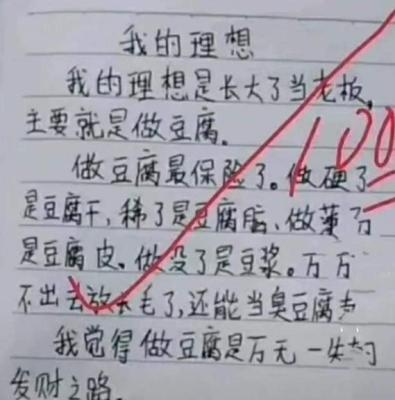 我的理想
我的理想是长大了当老板,
主要就是做豆腐。
做豆腐最保险了。做硬了
100
是豆腐干,稀了是豆腐脑、做薄了
是豆腐皮。做没了是豆浆。万万
不出去放长毛了,还能当臭豆腐
我觉得做豆腐是万无一失的
发财之路。